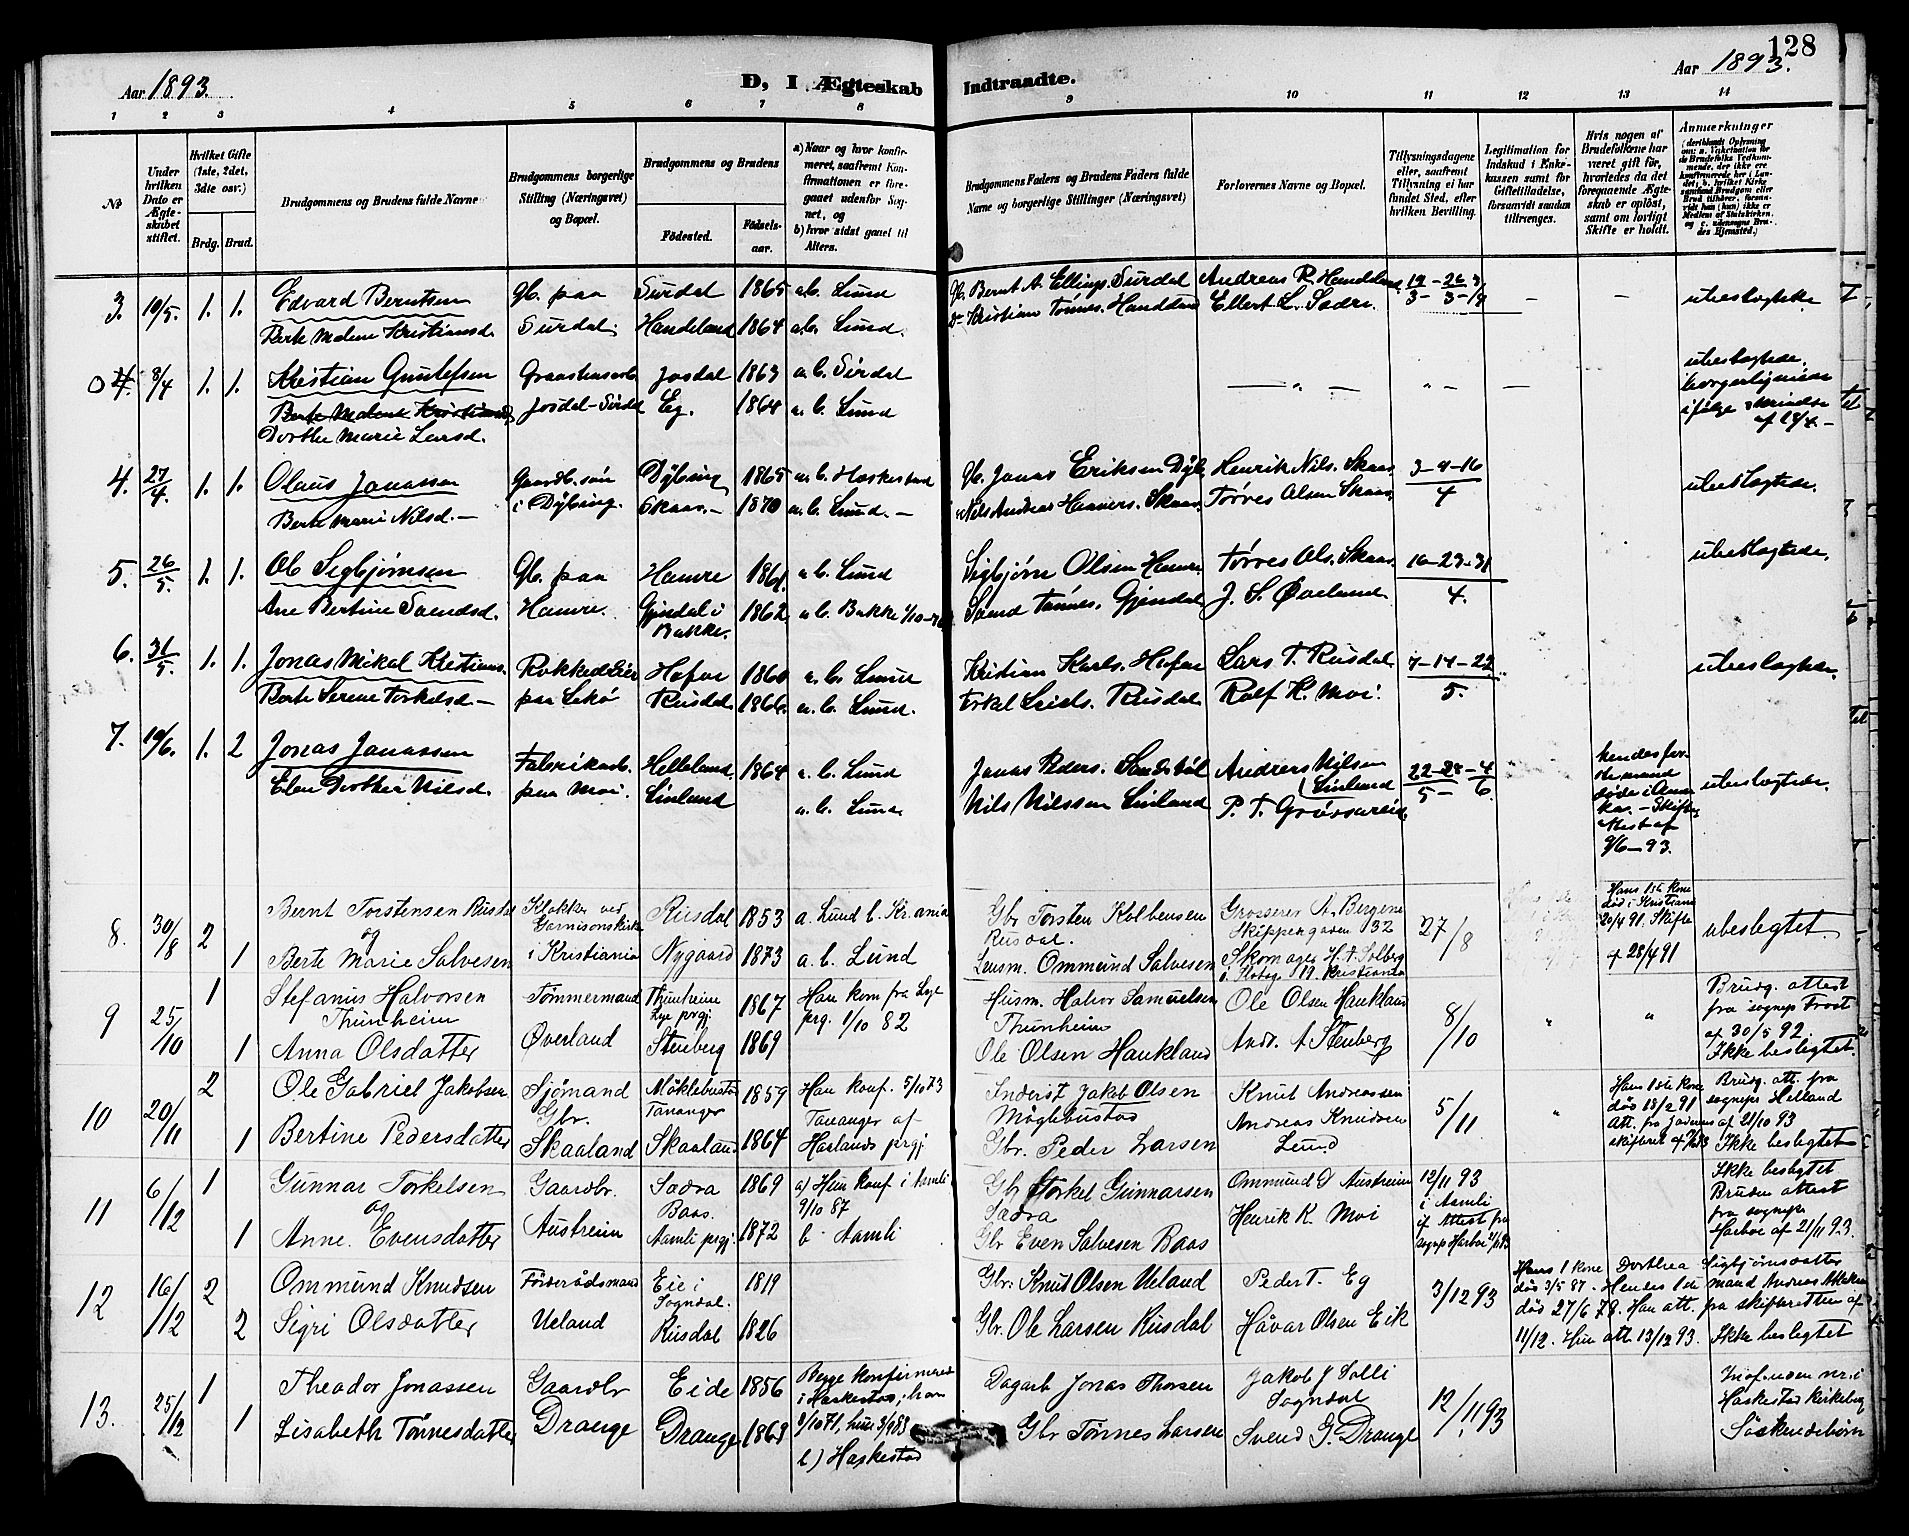 128
Aar 1893.
D, I Ægteskab Indtraadte.
Aar 1893.
1 2 3 4 5 6 7 8 9 10 11 12 13 14
No
Under hvilken Dato er Ægteskabet stiftet.
Hvilket Gifte (1ste, 2det, 3die osv.)
Brdg. Brud.
Brudgommens og Brudens fulde Navne
Brudgommens borgerlige Stilling (Næringsvei) og Bopæl.
Brudgommens og Brudens
Fødested.
Fødselsaar.
a) Naar og hvor konfirmeret, saafremt Konfirmationen er foregaaet udenfor Sognet, og
b) hvor sidst gaaet til Alters.
Brudgommens Faders og Brudens Faders fulde Navne og borgerlige Stillinger (Næringsvei)
Forlovernes Navne og Bopæl.
Tillysningsdagene eller, saafremt Tillysning ei har fundet Sted, efter hvilken Bevilling.
Legitimation for Indskud i Enkekassen samt for Giftetilladelse, forsaavidt saadan tiltrenges.
Hvis nogen af Brudefolkene har været gift før, hvorledes da det foregaaende Ægteskab er opløst, samt om lovligt Skifte er holdt.
Anmærkninger
3. 10/5. 1. 1. Edvard Berntsen Gb. paa Surdal 1865 a.b. Lund Gb. Bernt A. Ellings. Surdal Andreas R. Handeland - - ubeslægtede
Berte Malene Kristiansd. Surdal. Handeland 1864 a.b. Lund. Kristian Tønnes. Ellert L. Sædre.
4. 8/4 1. 1. Kristian Gunlefsen Josdal 1863 a. b. Sirdal — " — " - — ubeslægtede, borgerligviede
Berte Malene Kristiansd. Josdal-Sirdal Eg. 1864 a. b. Lund ifølge
Dorthe Marie Larsd.
4. 27/4. 1. 1. Olaus Jonassen Gaardb. søn Dybing 1865 a.b. Heskestad Gb. Jonas Eriksen Dyb. Henrik Nils. Skaas 3-9-16/4 ubeslægtede.
Berte Marie Nilsd. — i Dybing. Skaas. — 1870 a.b. Lund. — Nils Andreas Skaas. Tørres Olsen Skaas.
5. 26/5. 1. 1. Ole Sigbjørnsen Gb. paa Hamre 1861. a.b. Lund Sigbjørn Olsen Hamre. Tørres Ols. Skaas. 16-23-31/4. ubeslægtede.
Ane Bertine Svendsd. Hamre. Gjendal i Bakke. 1862 a.b. Bakke Svend Tønnes. Gjendal J. S. Øveland
6. 31/5 1. 1. Jonas Mikal Kristians. Rokkedreier Hofve 1860 a. b. Lund Kristian Karls. Hofve Lars T. Rusdal 7-14-22/5. ubeslægtede.
Berte Serene Torkelsd. — paa Lekø Rusdal 1866. a. b. Lund. Torkel Rusdal Rolf K. Moi.
7. 10/6. 1. 2 Jonas Jonassen Fabrikarb. Helleland. 1864 a. b. Lund Jonas Peders. Sandsbøl Andreas Nilsen Linland 22-28-4/5-6. hendes første mand døde i Amerika. - Skifteattest af 9/6-93. ubeslægtede.
Elen Dorthea Nilsd. paa Moi. Linland a. b. Lund Nils Nilssen Linland P. T. Grøssereid.
8. 30/8 2 Bernt Torstensen Rusdal Klokker ved Garnisonskirke Rusdal 1853 a. Lund b. Kr.ania Gbr Torsten Kolbensen Rusdal. Grosserer A. Bergene Skippergaden 32 27/8 Hans 1ste kone død i Kristiania 20/4 91. Skifte af 28/4 91 ubeslegtet.
og
1 Berte Marie Salvesen i Kristiania Nygaard 1873 a. b. Lund Lensm. Ommund Salvesen Skomager H. A. Solberg Kristiania
9 25/10 1 Stefanus Halvorsen Thunheim Tømmermand Thunheim Lye prgj. 1867 Han kom fra Lye prg. 1/10 82 Husm. Halvor Samuelsen Thunheim Ole Olsen Haukland 8/10 " " Brudg. attest fra sognepr Frost af 30/5 92. Ikke beslegtet.
1 Anna Olsdatter Øverland Stenberg 1869 Ole Olsen Haukland Andr. A Stenberg
10 20/11 2 Ole Gabriel Jakobsen Sjømand Gbr. Møklebustad Tananger 1859 Han konf. 5/10 73 Tananger af Inderst Jakob Olsen Møglebustad Knut Andreassen 5/11 " Hans 1ste kone død 18/2 91 Att. fra Jæderens skifteret Brudg. att. fra sognepr Hetland af 21/10 93 Ikke beslegtet
1 Bertine Pedersdatter Skaaland Skaaland 1864 Haalands prgj Gbr. Peder Larsen Andreas Knudsen Lund
11 6/12 1 Gunnar Torkelsen Gaardbr. Sædra 1869 a) Hun konf i Aamli 9/10 87 Gbr Torkel Gunnarsen Sædra Ommund O Austreim 12/11 93 i Aamli if Attest fra Ikke beslegtet Bruden attest fra sognepr Harboe af 21/11 93.
og
1 Anne Evensdatter Austreim Baas. Aamli prgj. 1872 b. Aamli Gbr Even Salvesen Baas Henrik K. Moi Sognepr Harboe
12 16/12 2 Ommund Knudsen Føderådsmand Eie i Sogndal. 1819 Gbr: Knut Olsen Ueland Peder T. Eg 3/12 93 Hans 1 kone Dorthea Sigbjørnsdatter død 3/5 87. Hendes 1ste mand Andreas
2 Sigri Olsdatter Ueland Rusdal 1826 Gbr. Ole Larsen Rusdal Håvar Olsen Eik død 27/6 78. Han att. fra skifteretten af 11/12. Hun att. 13/12 93. Ikke beslegtet
13. 25/12 1 Theodor Jonassen Gaardbr Eide 1856 Begge konfirmeret i Heskestad; han 8/10 71, hun Dagarb Jonas Thorsen Jakob J Solli Sogndal 12/11 93 Indf. uden nr. i Heskestad kirkebog Søskendebørn
1 Lisabeth Tønnesdatter Drange Drange 1869 b) Heskestad Gbr Tønnes Larsen Svend G. Drange